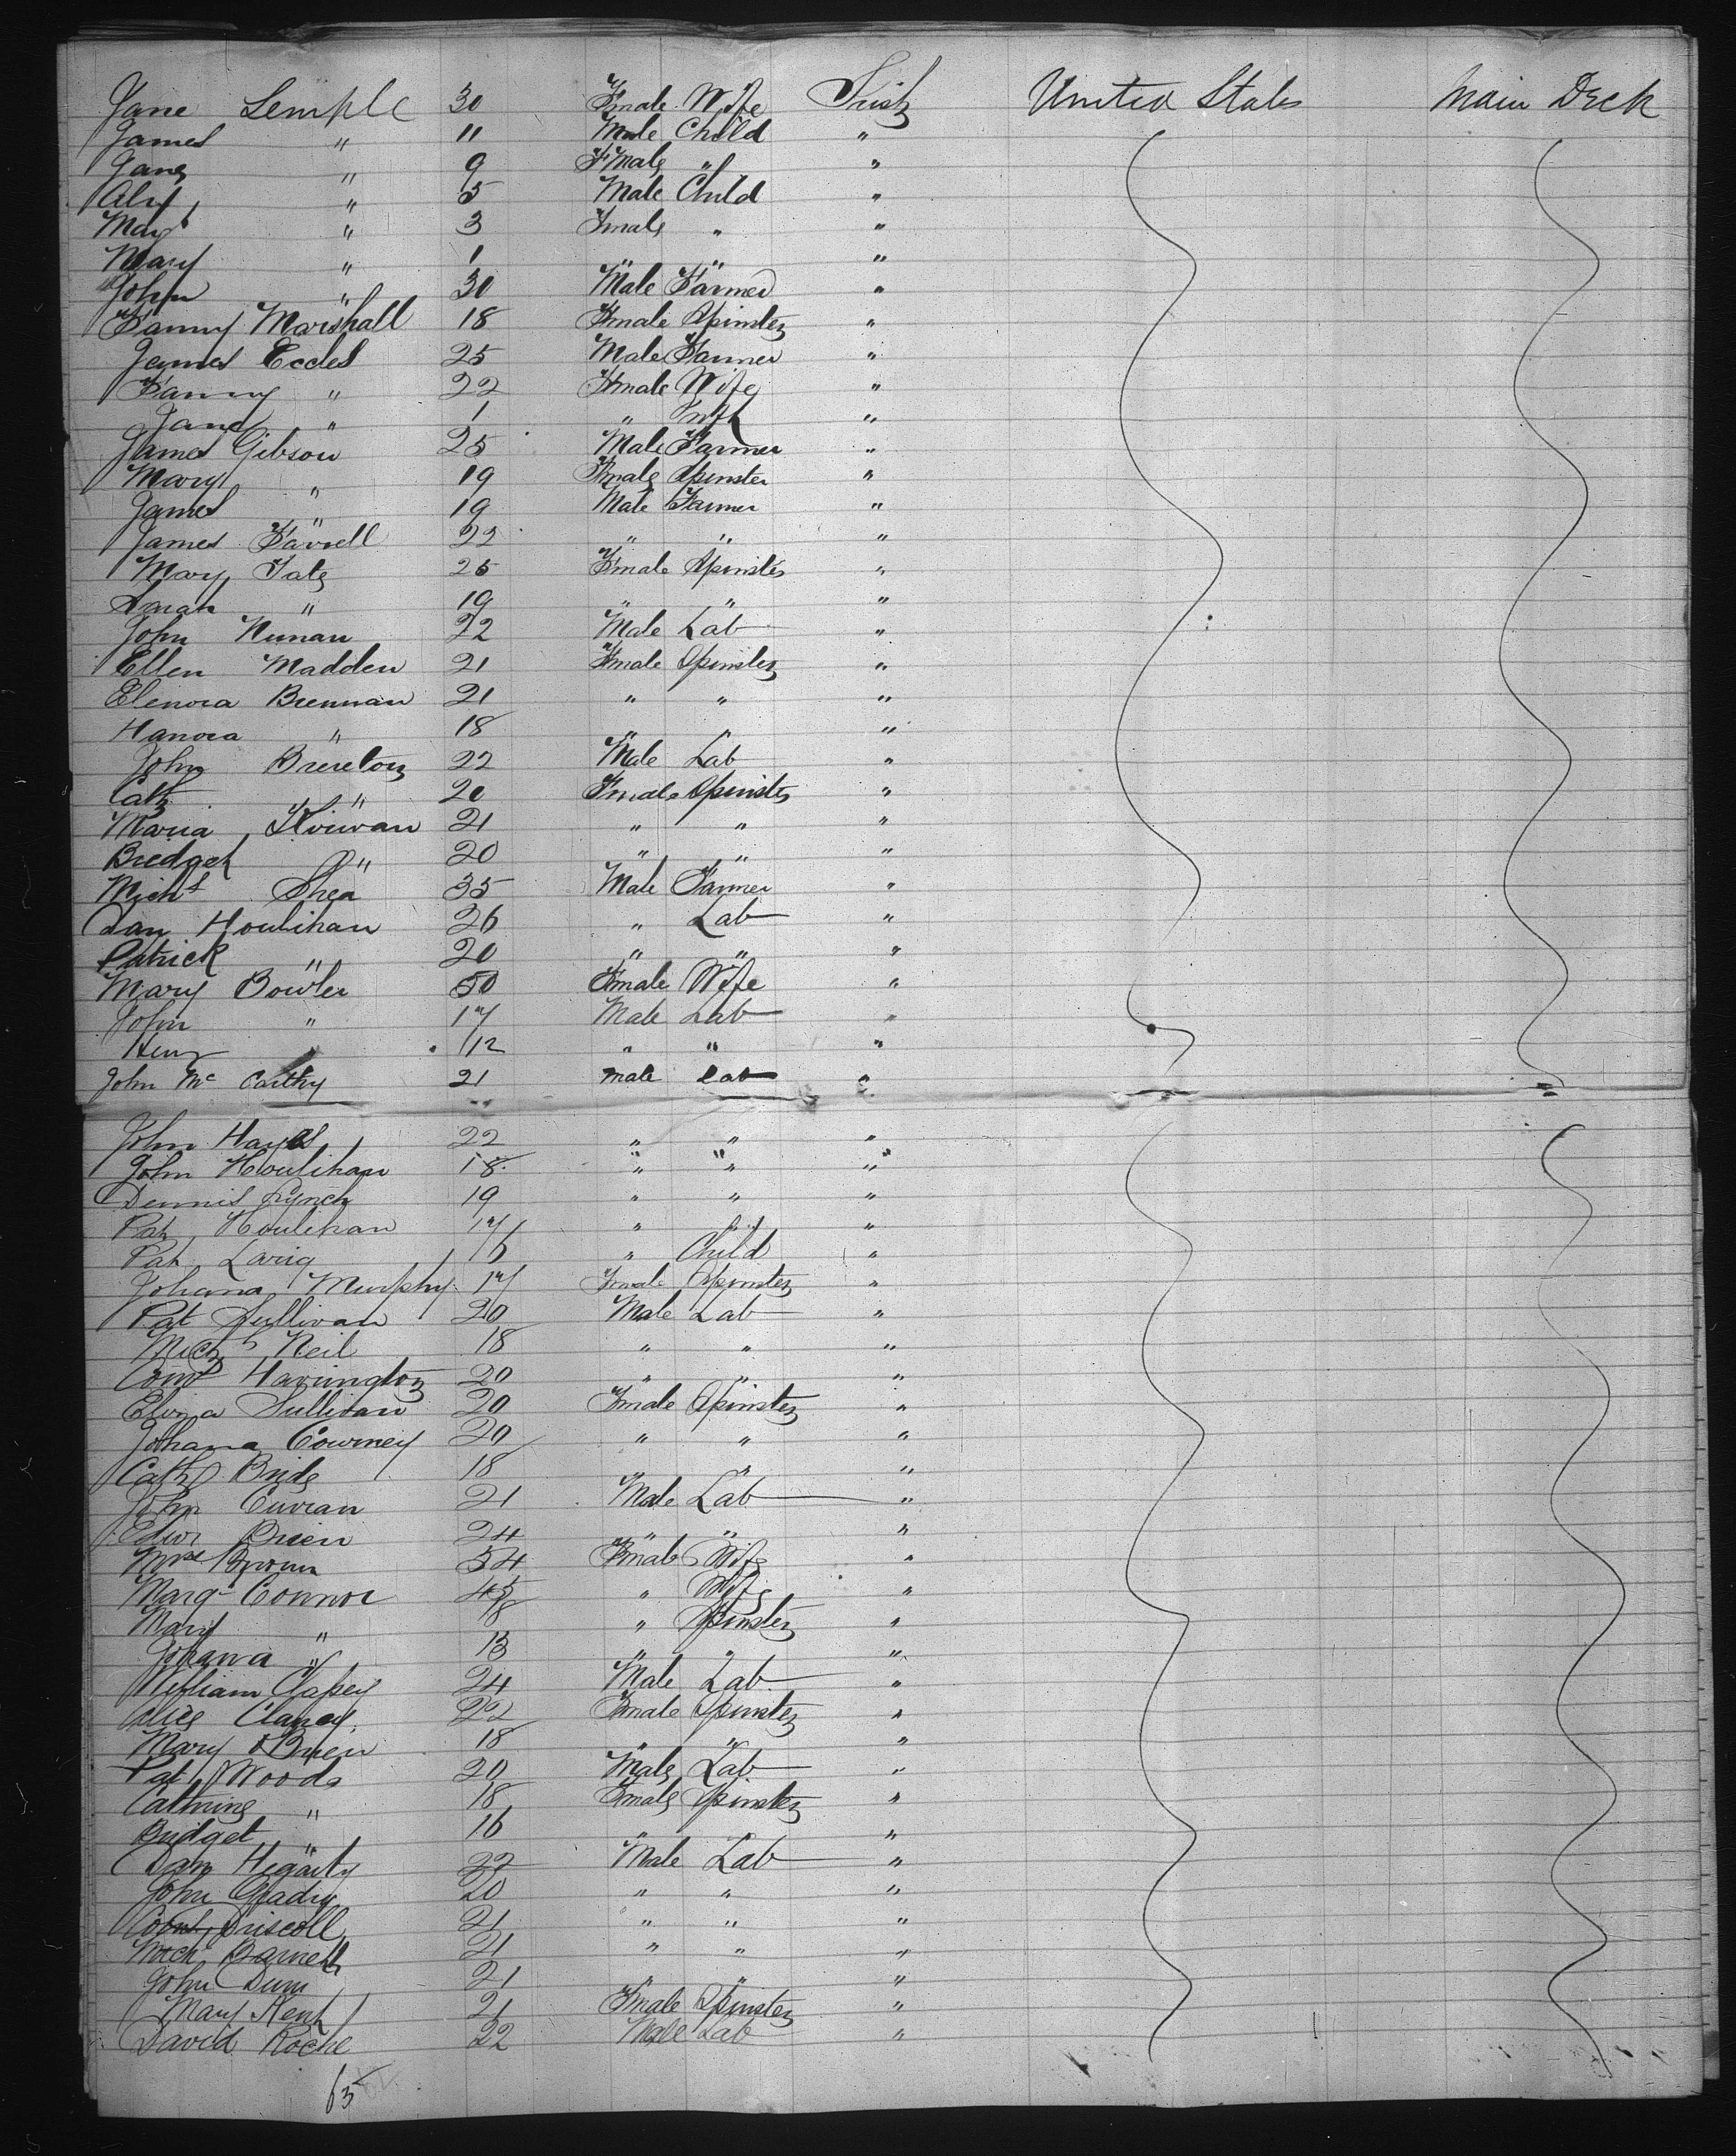 Jane Semple 30 Female Wife Irish United States Main Deck
James " 11 Male Child "
Jane " 9 Female " "
Alex " 5 Male Child "
Magt " 3 Female " "
Mary " 1 " " "
John " 30 Male Farmer "
Fanny Marshall 18 Female Spinster "
James Eccles 25 Male Farmer "
Fanny " 22 Female Wife "
Jane " 1 " Inft "
James Gibson 25 Male Farmer "
Mary " 19 Female Spinster "
James " 19 Male Farmer "
James Farrell 22 " " "
Mary Tate 25 Female Spinster "
Sarah " 19 " " "
John Nunan 22 Male Lab "
Ellen Madden 21 Female Spinster "
Elenora Brennan 21 " " "
Hanora " 18 " " "
John Brereton 22 Male Lab "
Cath " 20 Female Spinster "
Maria Kirwan 21 " " "
Bridget " 20 " " "
Michl Shea 35 Male Farmer "
Dan Houlihan 26 " Lab "
Patrick " 20 " " "
Mary Bowler 50 Female Wife "
John " 17 Male Lab "
Henry " 12 " " "
John Mc Carthy 21 male Lab "
John Hayes 22 " " "
John Houlihan 18 " " "
Dennis Lynch 19 " " "
Pat Houlihan 17 " " "
Pat Laring " Child "
Johana Murphy 17 Female Spinster "
Pat Sullivan 20 Male Lab "
Mich Neil 18 " " "
Corns Harrington 20 " " "
Sullivan 20 Female Spinster "
Johana Courney 20 " " "
Cath Bride 18 " " "
John Curran 21 Male Lab "
Edwd Brien 24 " " "
Mrs Brown 54 Female Wife "
Margt Connor 45 " Wife "
Mary " 18 " Spinster "
Johana " 13 " " "
William Casey 24 Male Lab "
Alice Clancy 22 Female Spinster "
Mary OBrien 18 " " "
Pat Woods 20 Male Lab "
Cathrine " 18 Female Spinster "
Bridget " 16 " " "
Dan Hegarty 22 Male Lab "
John Grady 20 " " "
Corns Driscoll 21 " " "
Mich Barnett 21 " " "
John Dunn 21 " " "
Mary Kent 21 Female Spinster "
David Roche 22 Male Lab "
63